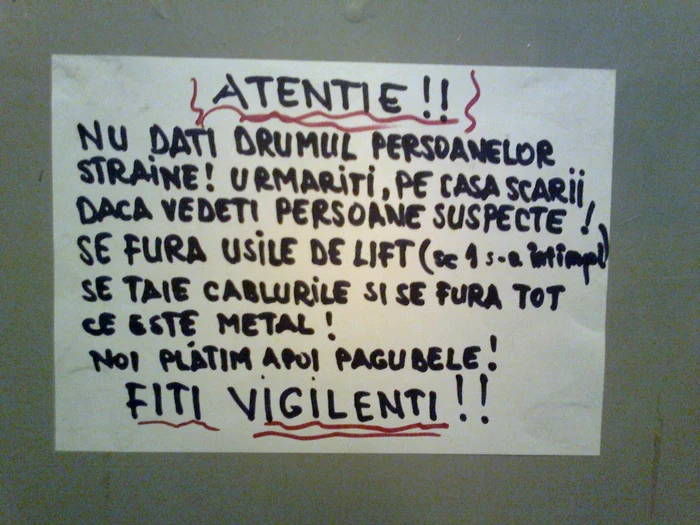 ATENTIE!!
NU DATI DRUMUL PERSOANELOR
STRAINE! URMARITI, PE CASA SCARII,
DACA VEDETI PERSOANE SUSPECTE!
SE FURA USILE DE LIFT (sc 1 s-a intimpl)
SE TAIE CABLURILE SI SE FURA TOT
CE ESTE METAL!
NOI PLATIM APOI PAGUBELE!
FITI VIGILENTI!!